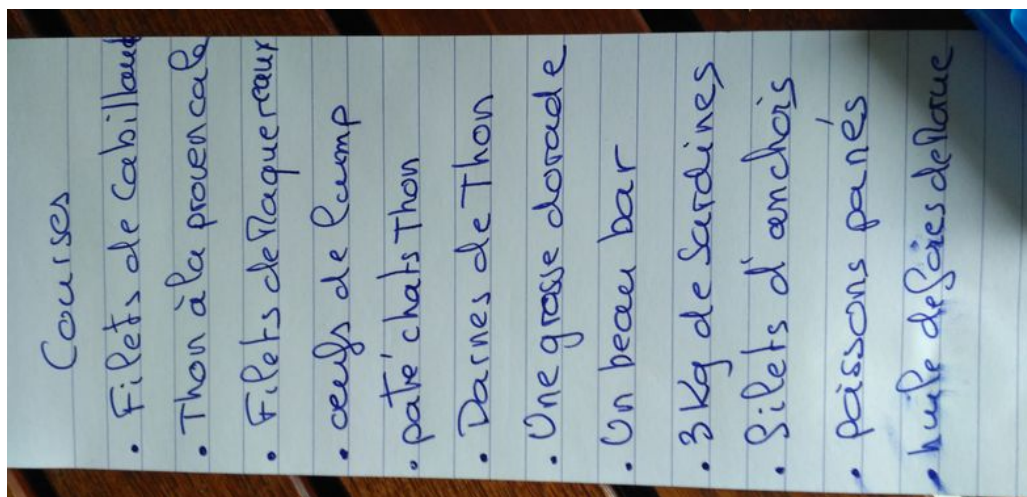 Courses
• Filets de Cabillaud
• Thon à la provencale
• Filets de Maquereaux
• oeufs de lump
• patré chats Thon
• Darnes de Thon
• Une grosse dorade
• Un beau bar
• 3 Kg de Sardines
• filets d'anchois
• poissons panés
• huile de foies de Morue